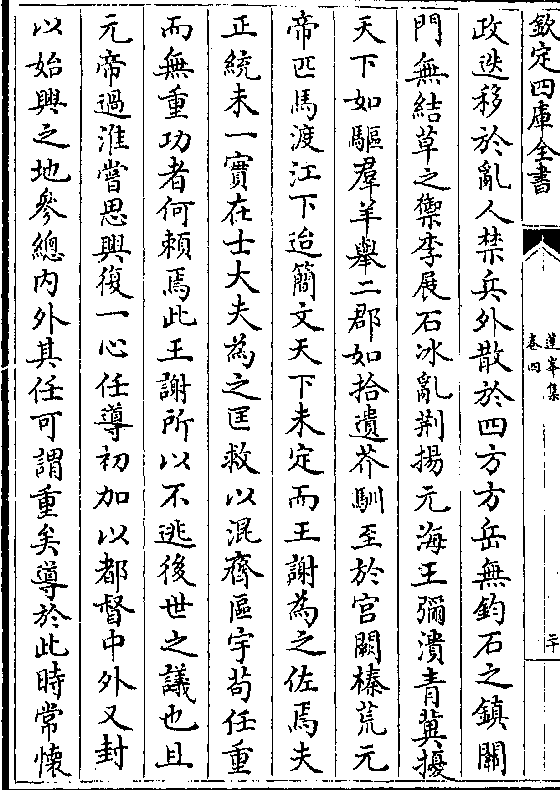 欽定四庫全書
蓮峯集
卷四
二十
政迭移於亂人禁兵外散於四方方岳無鈞石之鎮關
門無結草之禦李展石冰亂荆揚元海王彌潰青冀擾
天下如驅羣羊舉二郡如拾遺芥馴至於宮闕榛荒元
帝匹馬渡江下迨簡文天下未定而王謝為之佐焉夫
正統未一實在士大夫為之匡救以混齊區宇苟任重
而無重功者何賴焉此王謝所以不逃後世之議也且
元帝過淮嘗思興復一心任導初加以都督中外又封
以始興之地參總内外其任可謂重矣導於此時常懷